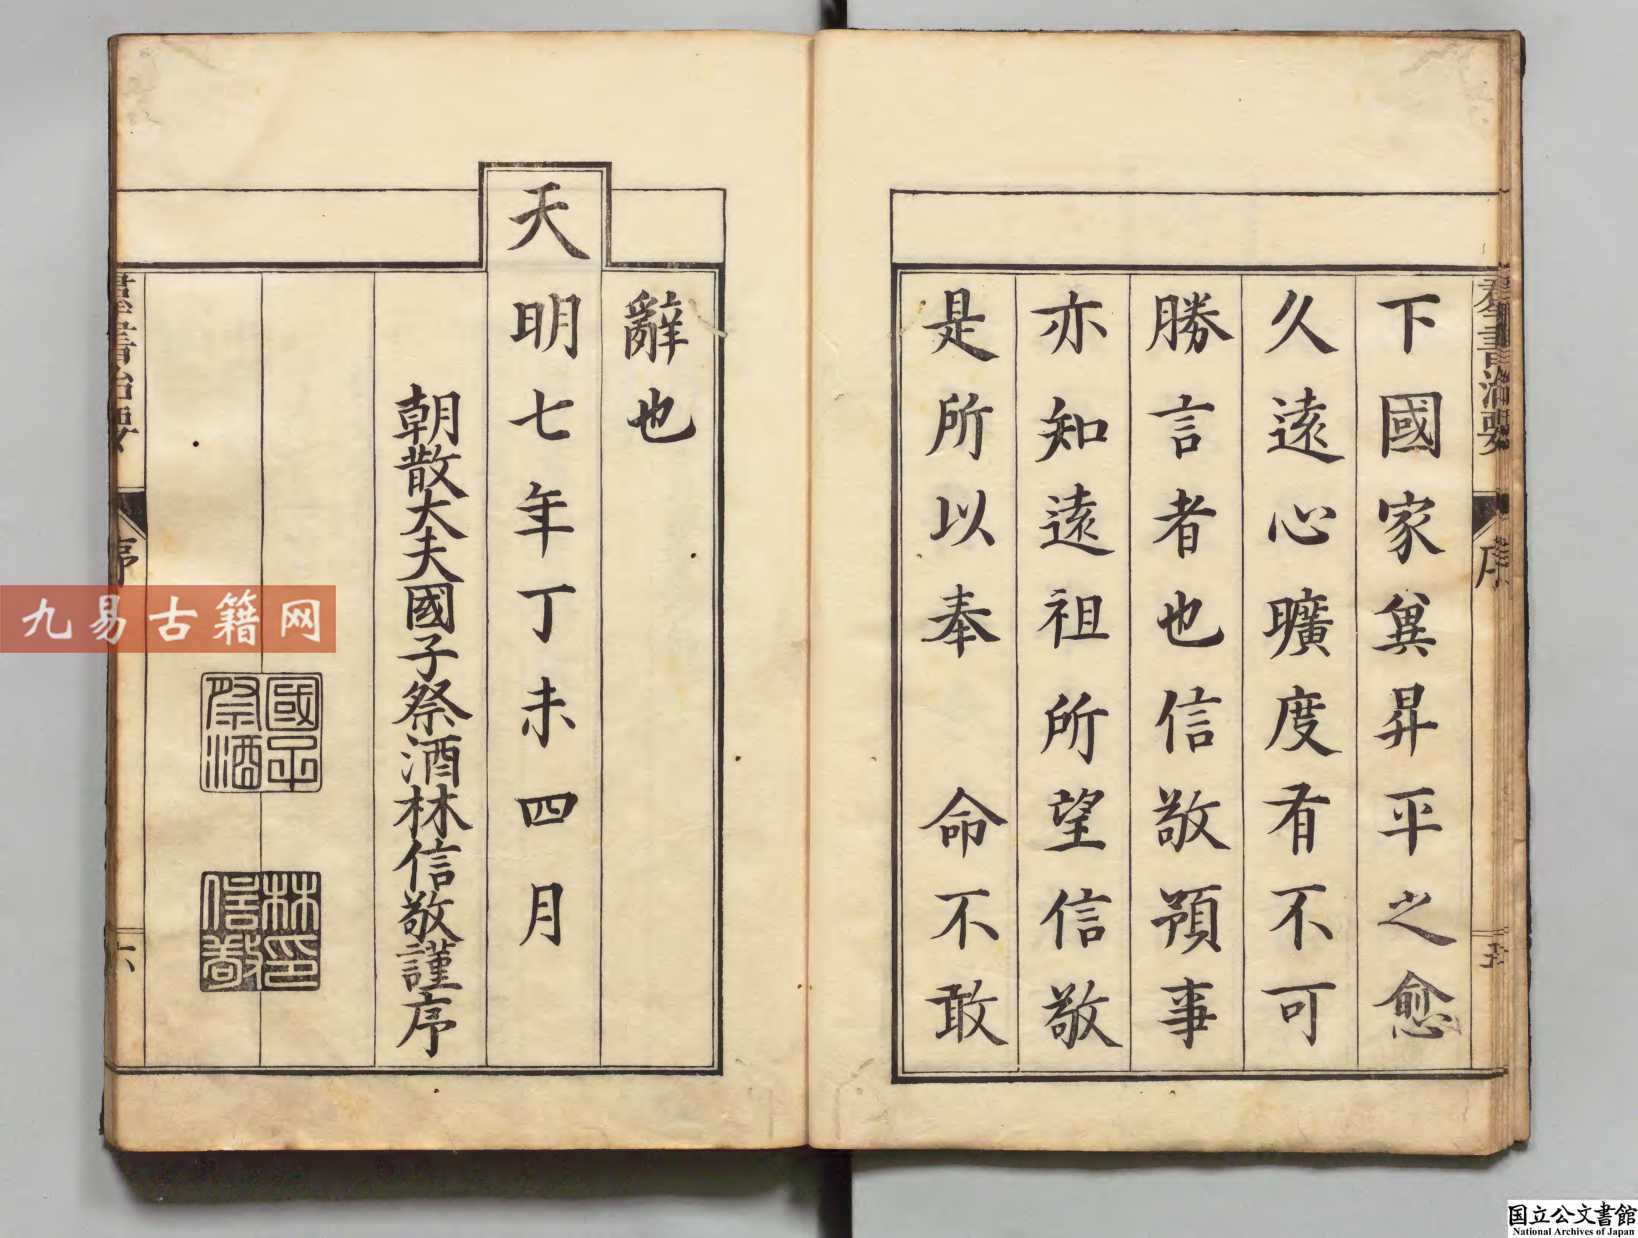 羣書治要
序
五
下國家兾昇平之愈
久遠心曠度有不可
勝言者也信敬預事
亦知遠祖所望信敬
是所以奉　命不敢
辭也
天明七年丁未四月
朝散大夫國子祭酒林信敬謹序
國子祭酒
林信敬印
羣書治要
序
六
九易古籍网
国立公文書館
National Archives of Japan